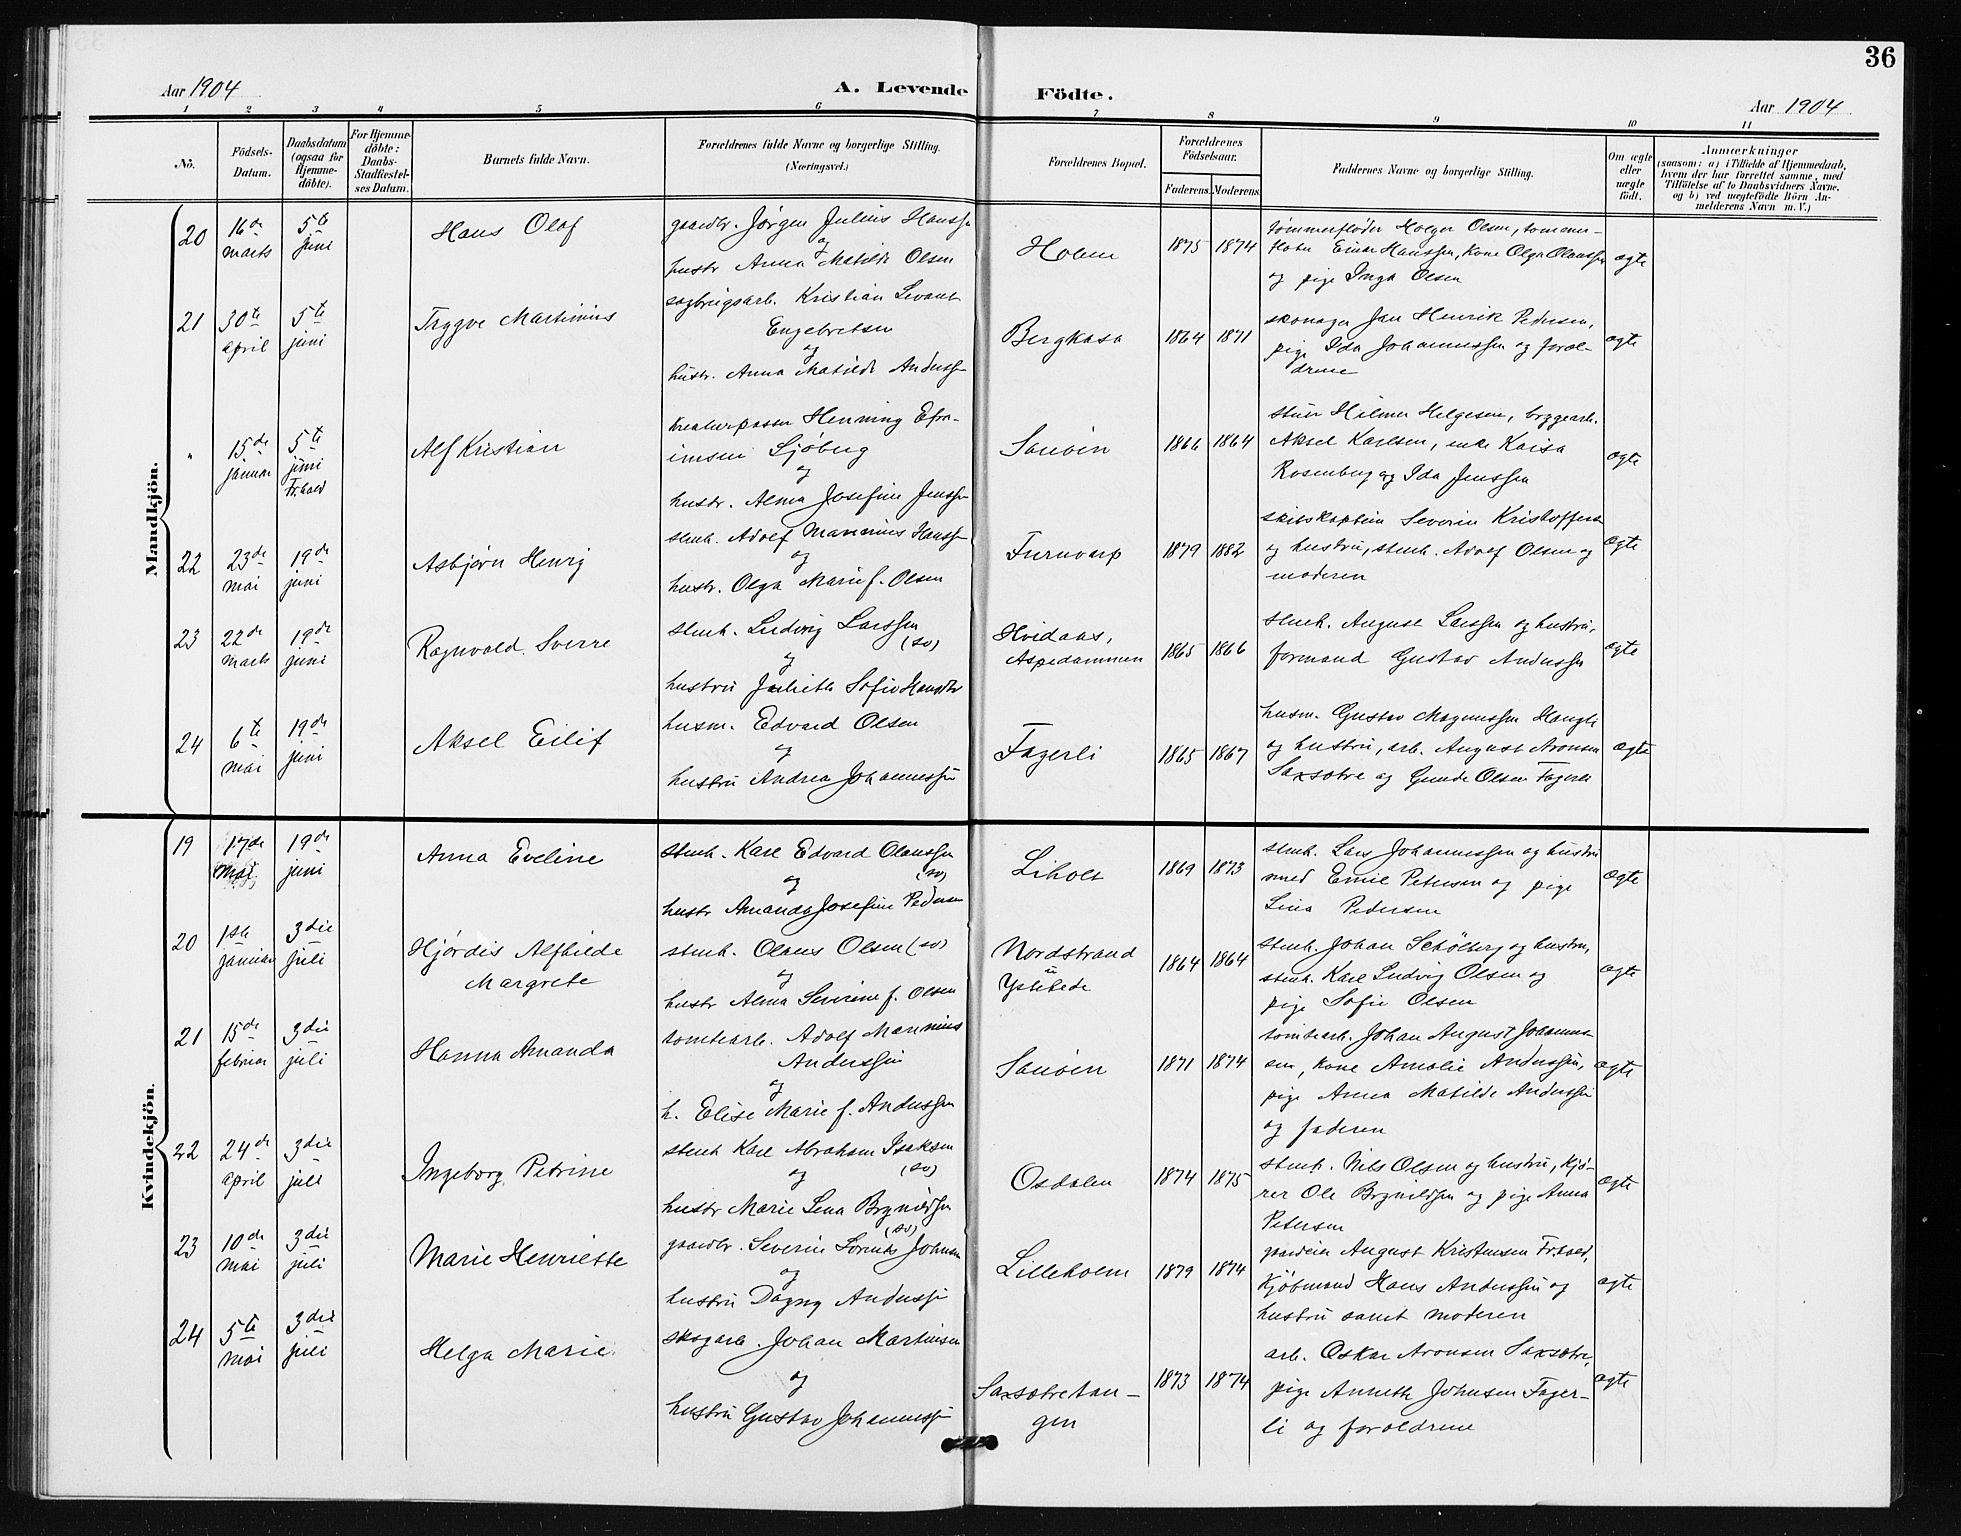 36
Aar 1904 A. Levende Födte. Aar 1904
1 2 3 4 5 6 7 8 9 10 11
No.
Födsels-Datum.
Daabsdatum (ogsaa for Hjemme-döbte).
For Hjemme-döbte: Daabs-Stadfæstel-ses Datum.
Barnets fulde Navn.
Forældrenes fulde Navne og borgerlige Stilling.
(Næringsvei.)
Forældrenes Bopæl.
Forældrenes Födselsaar.
Faderens. Moderens.
Faddernes Navne og borgerlige Stilling.
Om ægte eller uægte födt.
Anmærkninger
(saasom: a) i Tilfælde af Hjemmedaab,
hvem der har forrettet samme, med
Tilföielse af to Daabsvidners Navne,
og b) ved uægtefödte Börn An-
melderens Navn m. V.)
Mandkjön.
20 16de marts 5te juni
Hans Olaf
gaardbr. Jørgen Julius Hanssen
og
hustr Anna Matilde Olsen
Holm 1875 1874
tømmerfløder Holger Olsen, tømmer-
fløder Einar Hanssen, kone Olga Olaussen
og pige Inga Olsen
ægte
21 30te april 5te juni
Trygve Martinius
sagbrugsarb. Kristian Levant
Engebretsen
og
hustr. Anna Matilde Anderssen
Bergkasa 1864 1871
skomager Jan Henrik Pedersen,
pige Ida Johannessen og foræl-
drene
ægte
" 15de januar 5te juni Fr.hald
Alf Kristian
kreaturpasser Henning Efra-
imsen Sjöberg
og
hustr. Alma Josefine Jenssen
Sauöin 1866 1864
stuer Hilmer Helgesen, bryggearb.
Aksel Karlsen, enke Kaisa
Rosenberg og Ida Jenssen
ægte
22 23de mai 19de juni
Asbjørn Henry
stenh. Adolf Marinius Hanssen
og
hustr. Olga Marie f. Olsen
Furuvarp 1879 1882
skibskaptein Severin Kristoffersen
og hustru, stenh. Adolf Olsen og
moderen
ægte
23 22de marts 19de juni
Ragnvald Sverre
stenh. Ludvig Larssen
(sv)
og
hustru Juliette Sofie Hansdtr
Hvidaas,
Aspedammen 1865 1866
stenh. August Larssen og hustru,
formand Gustav Anderssen
ægte
24 6te mai 19de juni
Aksel Eilif
husm. Edvard Olsen
og
hustru Andrea Johannessen
Fagerli 1865 1867
husm. Gustav Magnussen Haugli
og hustru, arb. August Aronsen
Saxsætre og Gunda Olsen Fagerli
ægte
Kvindekjön.
19 17de mai 19de juni
Anna Eveline
stenh. Karl Edvard Olaussen
(sv)
og
hustr Amanda Josefine Pedersen
Liholt 1869 1873
stenh. Lars Johannessen og hustru
smed Emil Petersen og pige
Lina Pedersen
ægte
20 1ste januar 3die juli
Hjördis Alfhilde
Margrete
stenh. Olaus Olsen (sv)
og
hustr Alma Severine f. Olsen
Nordstrand
u
Ystehede 1864 1864
stenh. Johan Schölberg og hustru,
stenh. Karl Ludvig Olsen og
pige Sofie Olsen
ægte
21 15de februar 3die juli
Hanna Amanda
tomtearb. Adolf Marinius
Anderssen
og
h. Elise Marie f. Anderssen
Sauöin 1871 1874
tomtearb. Johan August Johannes-
sen, kone Amalie Anderssen,
pige Anna Matilde Anderssen
og faderen
ægte
22 24de april 3die juli
Ingeborg Petrine
stenh Karl Abraham Isaksen
(sv)
og
hustr Marie Lena Brynildsen
Osdalen 1874 1875
stenh. Nils Olsen og hustru, kjø-
rer Ole Brynildsen og pige Anna
Petersen
ægte
23 10de mai 3die juli
Marie Henriette
(sv)
gaardbr. Severin Lorents Johnsen
og
hustru Dagny Anderssen
Lilleholm 1879 1874
gaardeier August Kristensen Fr.hald,
kjøbmand Hans Anderssen og
hustru samt moderen
ægte
24 5te mai 3die juli
Helga Marie
skogarb. Johan Martinsen
og
hustru Gustav Johannessen
Saxsætretan-
gen 1873 1874
arb. Oskar Aronsen Saxsætre,
pige Annette Johnsen Fager-
li og forældrene
ægte